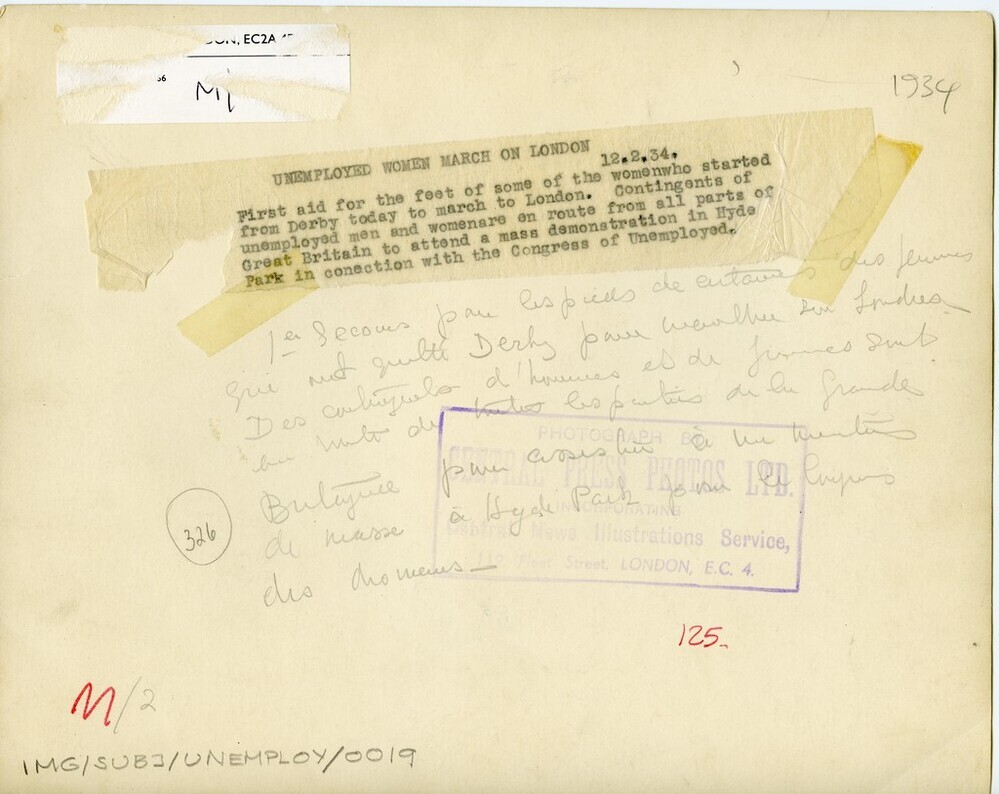 EC2A
66
M/
1934
UNEMPLOYED WOMEN MARCH ON LONDON
12.2.34.
First aid for the feet of some of the womenwho started
from Derby today to march to London. Contingents of
unemployed men and womenare en route from all parts of
Great Britain to attend a mass demonstration in Hyde
Park in conection with the Congress of Unemployed.
1er Secours pour les pieds de certaines des femmes
qui ont quitté Derby pour marcher sur Londres
Des contingents d'hommes et de femmes sont
en route de toutes les parties de la Grande
Bretagne pour assister à un meeting
de masse à Hyde Park pour le Congrès
des chomeurs
PHOTOGRAPH BY
CENTRAL PRESS PHOTOS LTD.
INCORPORATING
Central News Illustrations Service,
Fleet Street, LONDON, E.C. 4.
326
125.
M/2
IMG/SUBJ/UNEMPLOY/0019